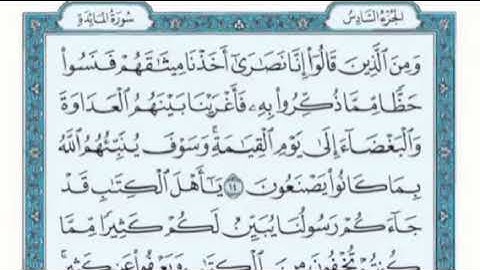 سُورَةُ المَائِدَةِ الجُزْءُ السَّادِسُ
وَمِنَ ٱلَّذِينَ قَالُوٓا۟ إِنَّا نَصَٰرَىٰٓ أَخَذْنَا مِيثَٰقَهُمْ فَنَسُوا۟
حَظًّا مِّمَّا ذُكِّرُوا۟ بِهِۦ فَأَغْرَيْنَا بَيْنَهُمُ ٱلْعَدَاوَةَ
وَٱلْبَغْضَآءَ إِلَىٰ يَوْمِ ٱلْقِيَٰمَةِ ۚ وَسَوْفَ يُنَبِّئُهُمُ ٱللَّهُ
بِمَا كَانُوا۟ يَصْنَعُونَ ١٤ يَٰٓأَهْلَ ٱلْكِتَٰبِ قَدْ
جَآءَكُمْ رَسُولُنَا يُبَيِّنُ لَكُمْ كَثِيرًا مِّمَّا
كُنتُمْ تُخْفُونَ مِنَ ٱلْكِتَٰبِ وَيَعْفُوا۟ عَن كَثِيرٍ ۚ